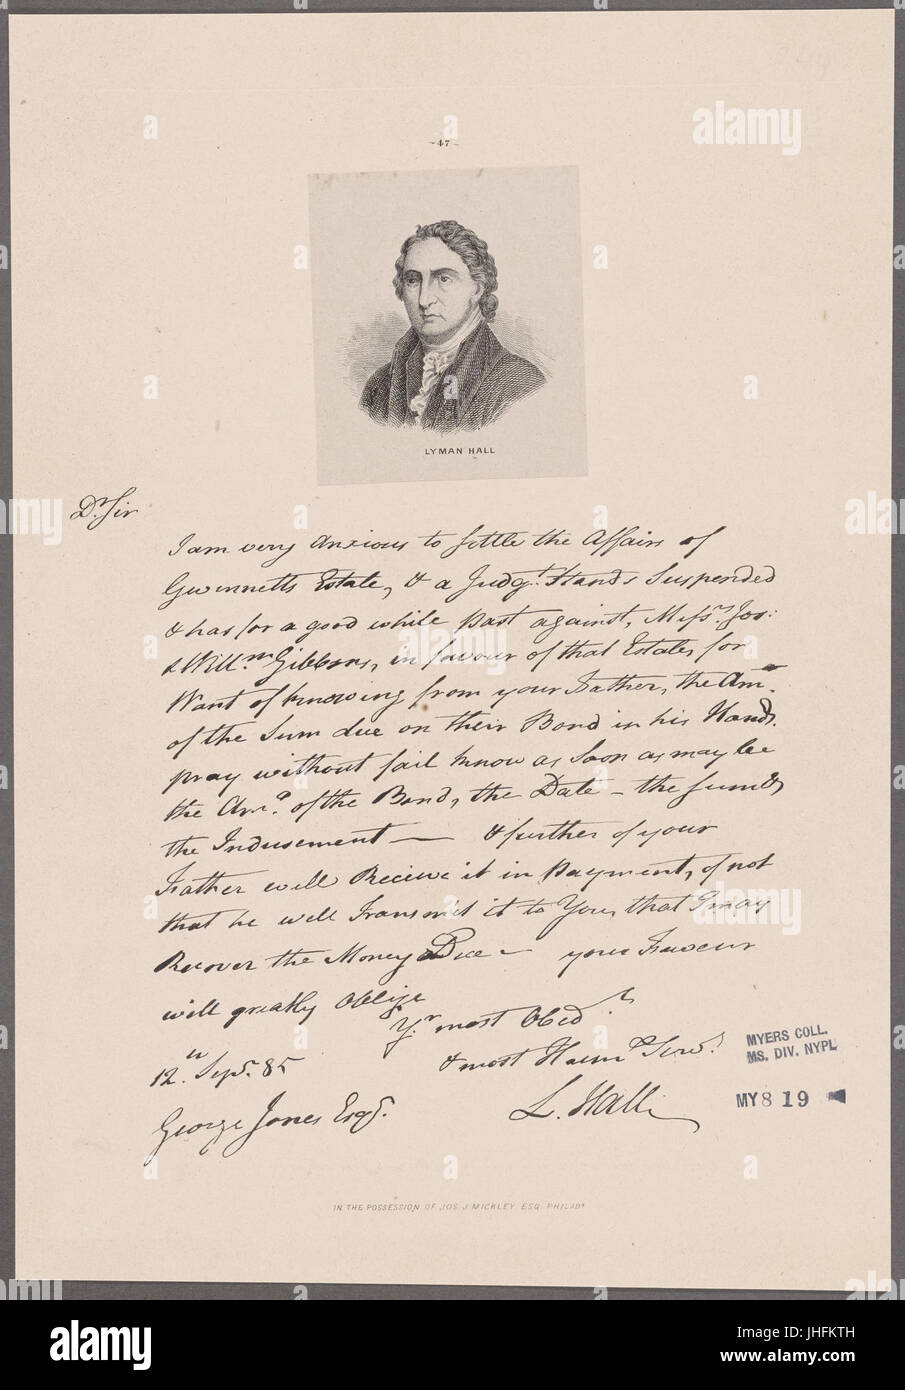 -47-
LYMAN HALL
Dr Sir
I am very Anxious to Settle the Affairs of
Gwinnetts Estate, & a Judgt. Stands Suspended
& has for a good while past against, Messrs. Jos:
& Willm. Gibbons, in favour of that Estate, for
Want of knowing from your Father, the Amo.
of the Sum due on their Bond in his Hands.
pray without fail know as Soon as may be
the Amo. of the Bond, the Date – the Sum &
the Indusement — & further if your
Father will Receive it in payment, if not
that he will Transmit it to You, that I may
Recover the Money Due – your Faveur
will greatly Oblige
Yr. most Obedt.
& most Humb Servt.
12th Sepr. 85
L. Hall
George Jones Esqr.
IN THE POSSESSION OF JOS. J. MICKLEY ESQ. PHILADA
MYERS COLL.
MS. DIV. NYPL
MY 8 19
a alamy
alamy
Image ID: JHFKTH
www.alamy.com